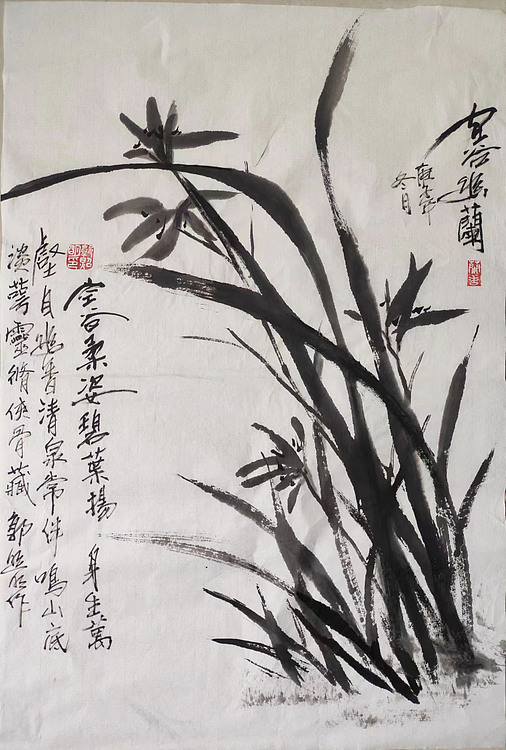 空谷幽蘭
冬月
空谷柔姿碧葉揚 身生萬
壑自幽香清泉常伴鳴山底
淡萼靈脩俠骨藏 郭作